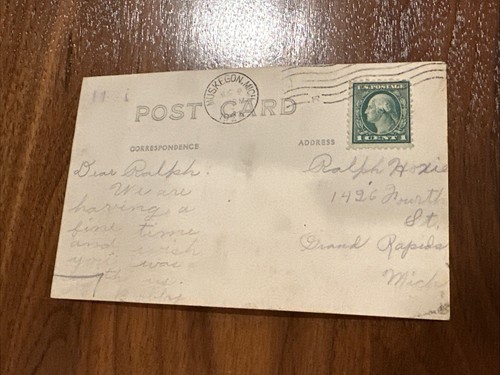 MUSKEGON, MICH.
U.S. POSTAGE
1 CENT 1
POST CARD
CORRESPONDENCE
ADDRESS
Dear Ralph.
We are
having a
fine time
and wish
you was
with us.
Ralph Hoxie
1426 Fourth
St.
Grand Rapids
Mich